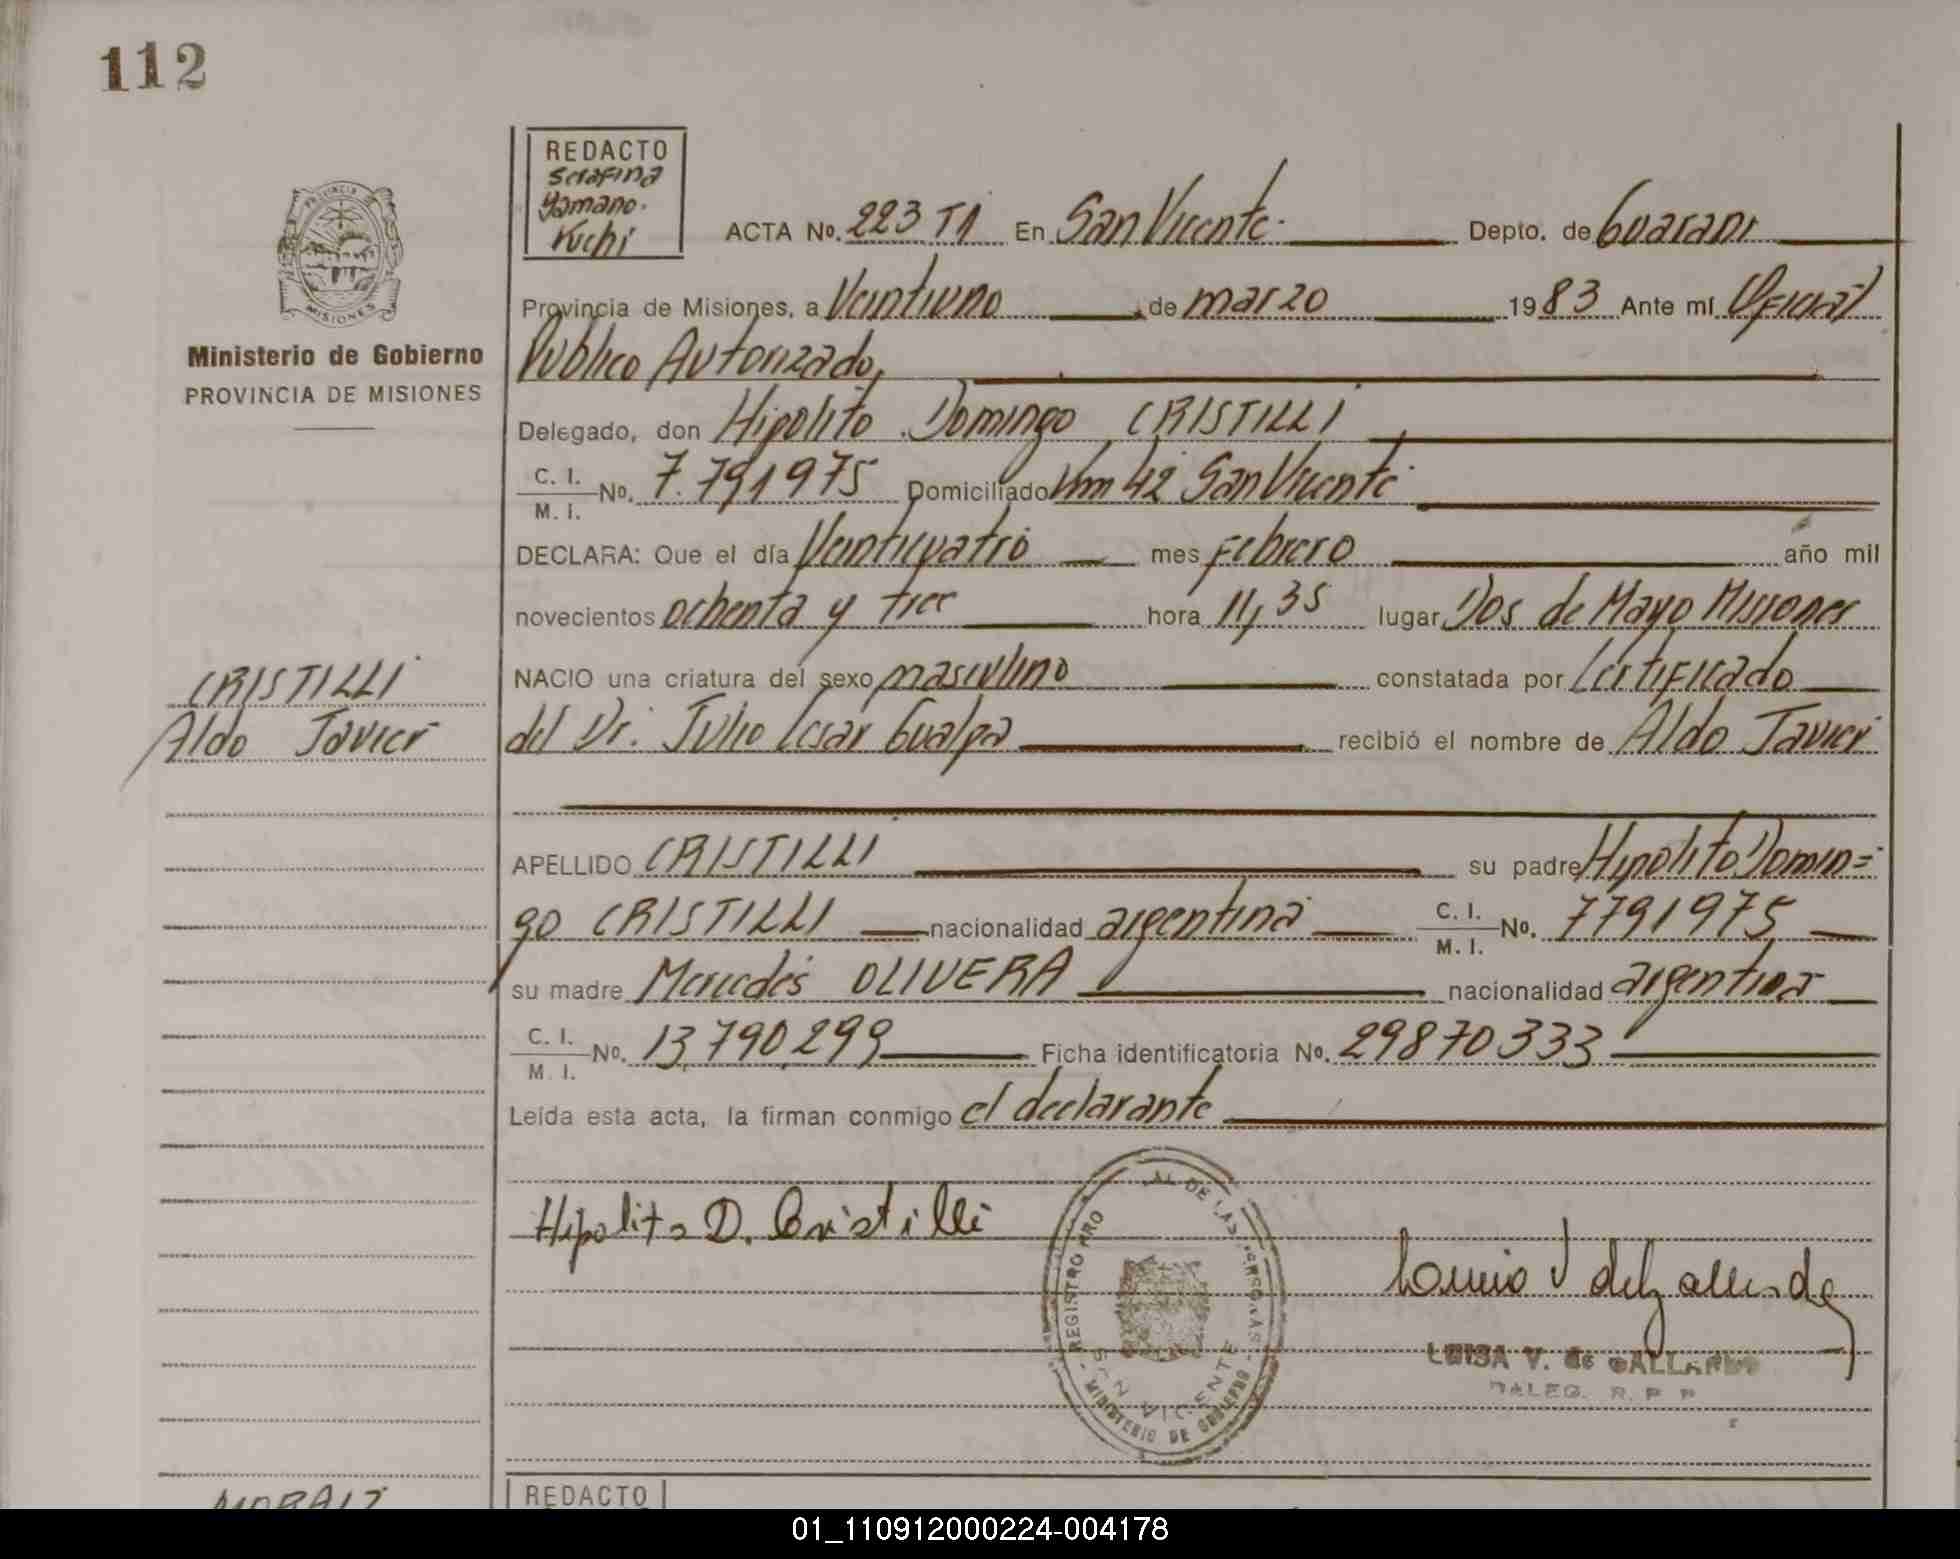 112
REDACTO
Serafina
Yamano.
Kuchi
ACTA No. 223 T1 En San Vicente. Depto. de Guarani
Provincia de Misiones, a Veintiuno de marzo 1983 Ante mí Oficial
Publico Autorizado,
Delegado, don Hipolito Domingo CRISTILLI
C. I. M. I. No. 7.791975 Domiciliado Km 42 San Vicente
DECLARA: Que el día Veinticuatro mes Febrero año mil
novecientos ochenta y tres hora 11,35 lugar Dos de Mayo Misiones
NACIO una criatura del sexo masculino constatada por Certificado
del Dr. Julio Cesar Gualpa recibió el nombre de Aldo Javier
APELLIDO CRISTILLI su padre Hipolito Domin=
go CRISTILLI nacionalidad argentina C. I. M. I. No. 7791975
su madre Mercedes OLIVERA nacionalidad argentina
C. I. M. I. No. 13,790,299 Ficha identificatoria No. 29870333
Leída esta acta, la firman conmigo el declarante
Hipolito D. Cristilli
LUISA V. de GALLARDO
DALEG. R. P. P
PROVINCIA
MISIONES
Ministerio de Gobierno
PROVINCIA DE MISIONES
CRISTILLI
Aldo Javier
REGISTRO PRO AL DE LAS PERSONAS
SAN VICENTE
MINISTERIO DE GOBIERNO
REDACTO
01_110912000224-004178